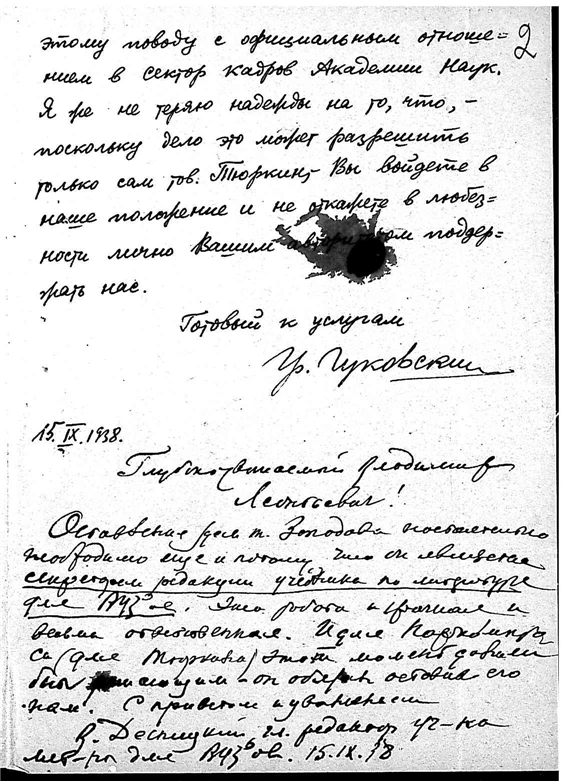 2
этому поводу с официальным отноше=
нием в сектор кадров Академии Наук.
Я же не теряю надежды на то, что, –
поскольку дело это может разрешить
только сам тов. Тюркин, – Вы войдете в
наше положение и не откажете в любез=
ности лично Вашим авторитетом поддер=
жать нас.
Готовый к услугам
Гр. Гуковский
15.IX.1938.
Глубокоуважаемый Владимир
Леонтьевич!
Оставление т. настоятельно
необходимо еще и потому, что он является
секретарем редакции учебника по литературе
для ВУЗ'ов. Эта работа и срочная и
весьма ответственная. И для
(для Тюркина) этот момент должен
быть – он обязан оставить его
нам. С приветом и уважением
В. Десницкий, гл. редактор уч-ка
лит-ры для ВУЗ'ов. 15.IX.38